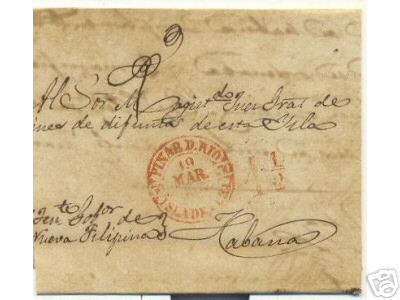 Al Sõr Magistdo Juez Gral de
bienes de difuntos de esta Ysla
PINAR D. RIO
19
MAR.
1 1/2
Tente Gobor de
Nueva Filipina
Habana
ebY